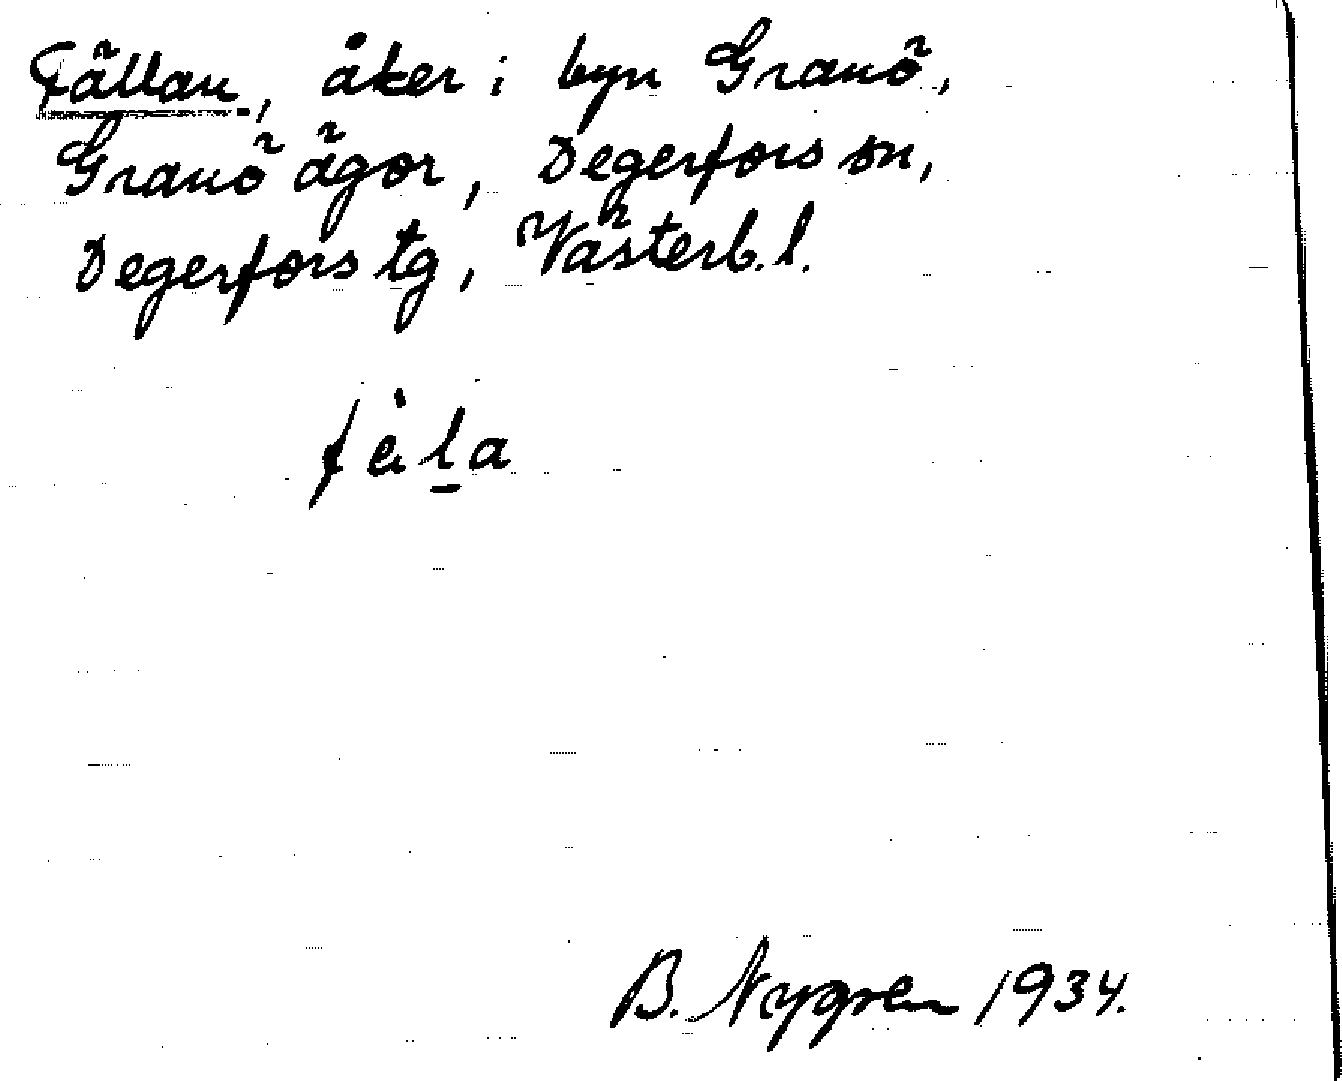 Fällan, åker i byn Granö,
Granö ägor, Degerfors sn,
Degerfors tg, Västerb. l.
fäla
B. Nygren 1934.